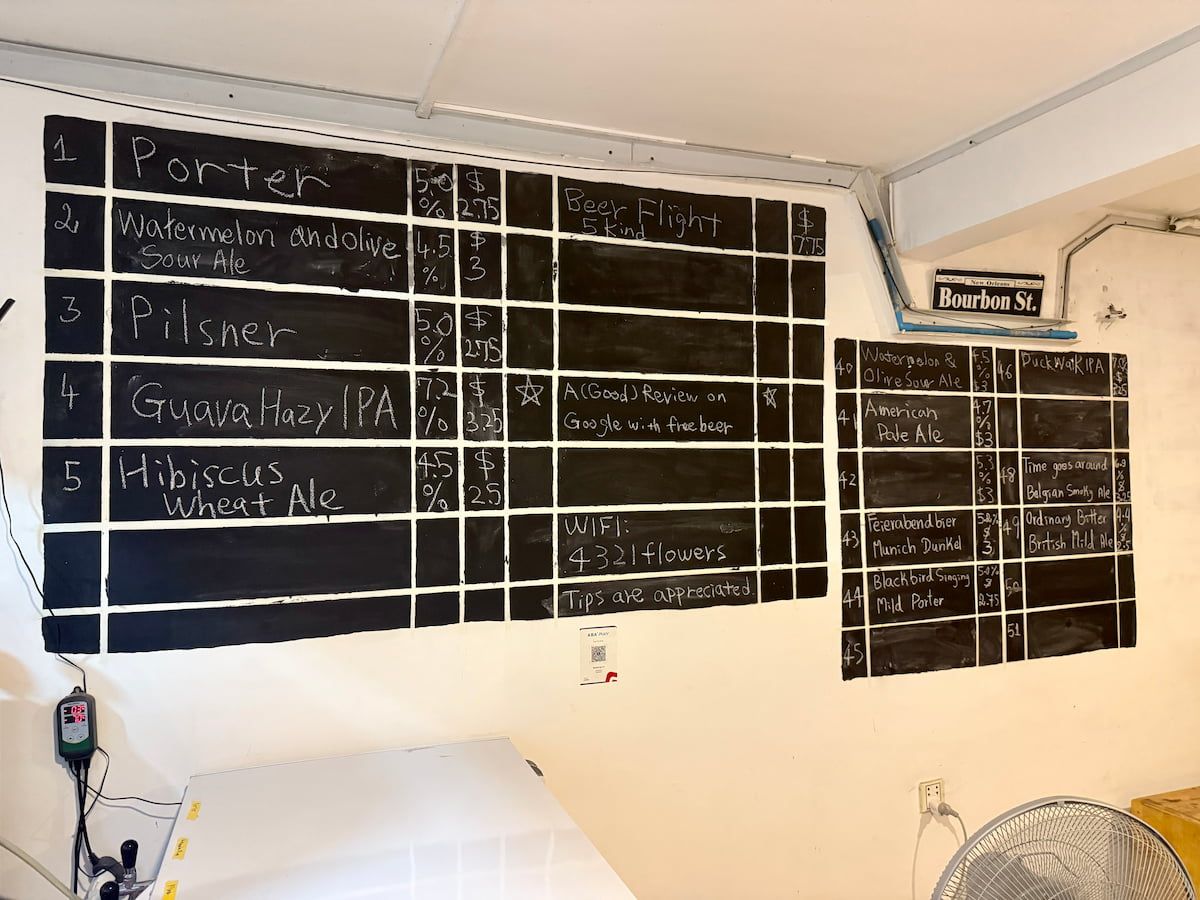 1 Porter 5.0 % $ 2.75
2 Watermelon and Olive
Sour Ale 4.5 % $ 3
3 Pilsner 5.0 % $ 2.75
4 Guava Hazy IPA 7.2 % $ 3.25
5 Hibiscus
Wheat Ale 4.5 % $ 2.5
Beer Flight
5 Kind $ 7.75
A (Good) Review on
Google with free beer
WIFI:
4321flowers
Tips are appreciated.
New Orleans
Bourbon St.
40 Watermelon &
Olive Sour Ale 4.5 % $3
41 American
Pale Ale 4.7 % $3
42 5.3 % $3
43 Feierabendbier
Munich Dunkel $ 3
44 Blackbird Singing
Mild Porter 5.0% $ 2.75
45
46 Duck Walk IPA
48 Time goes around
Belgian Smoky Ale
49 Ordinary Bitter
British Mild Ale 4.4 %
50
51